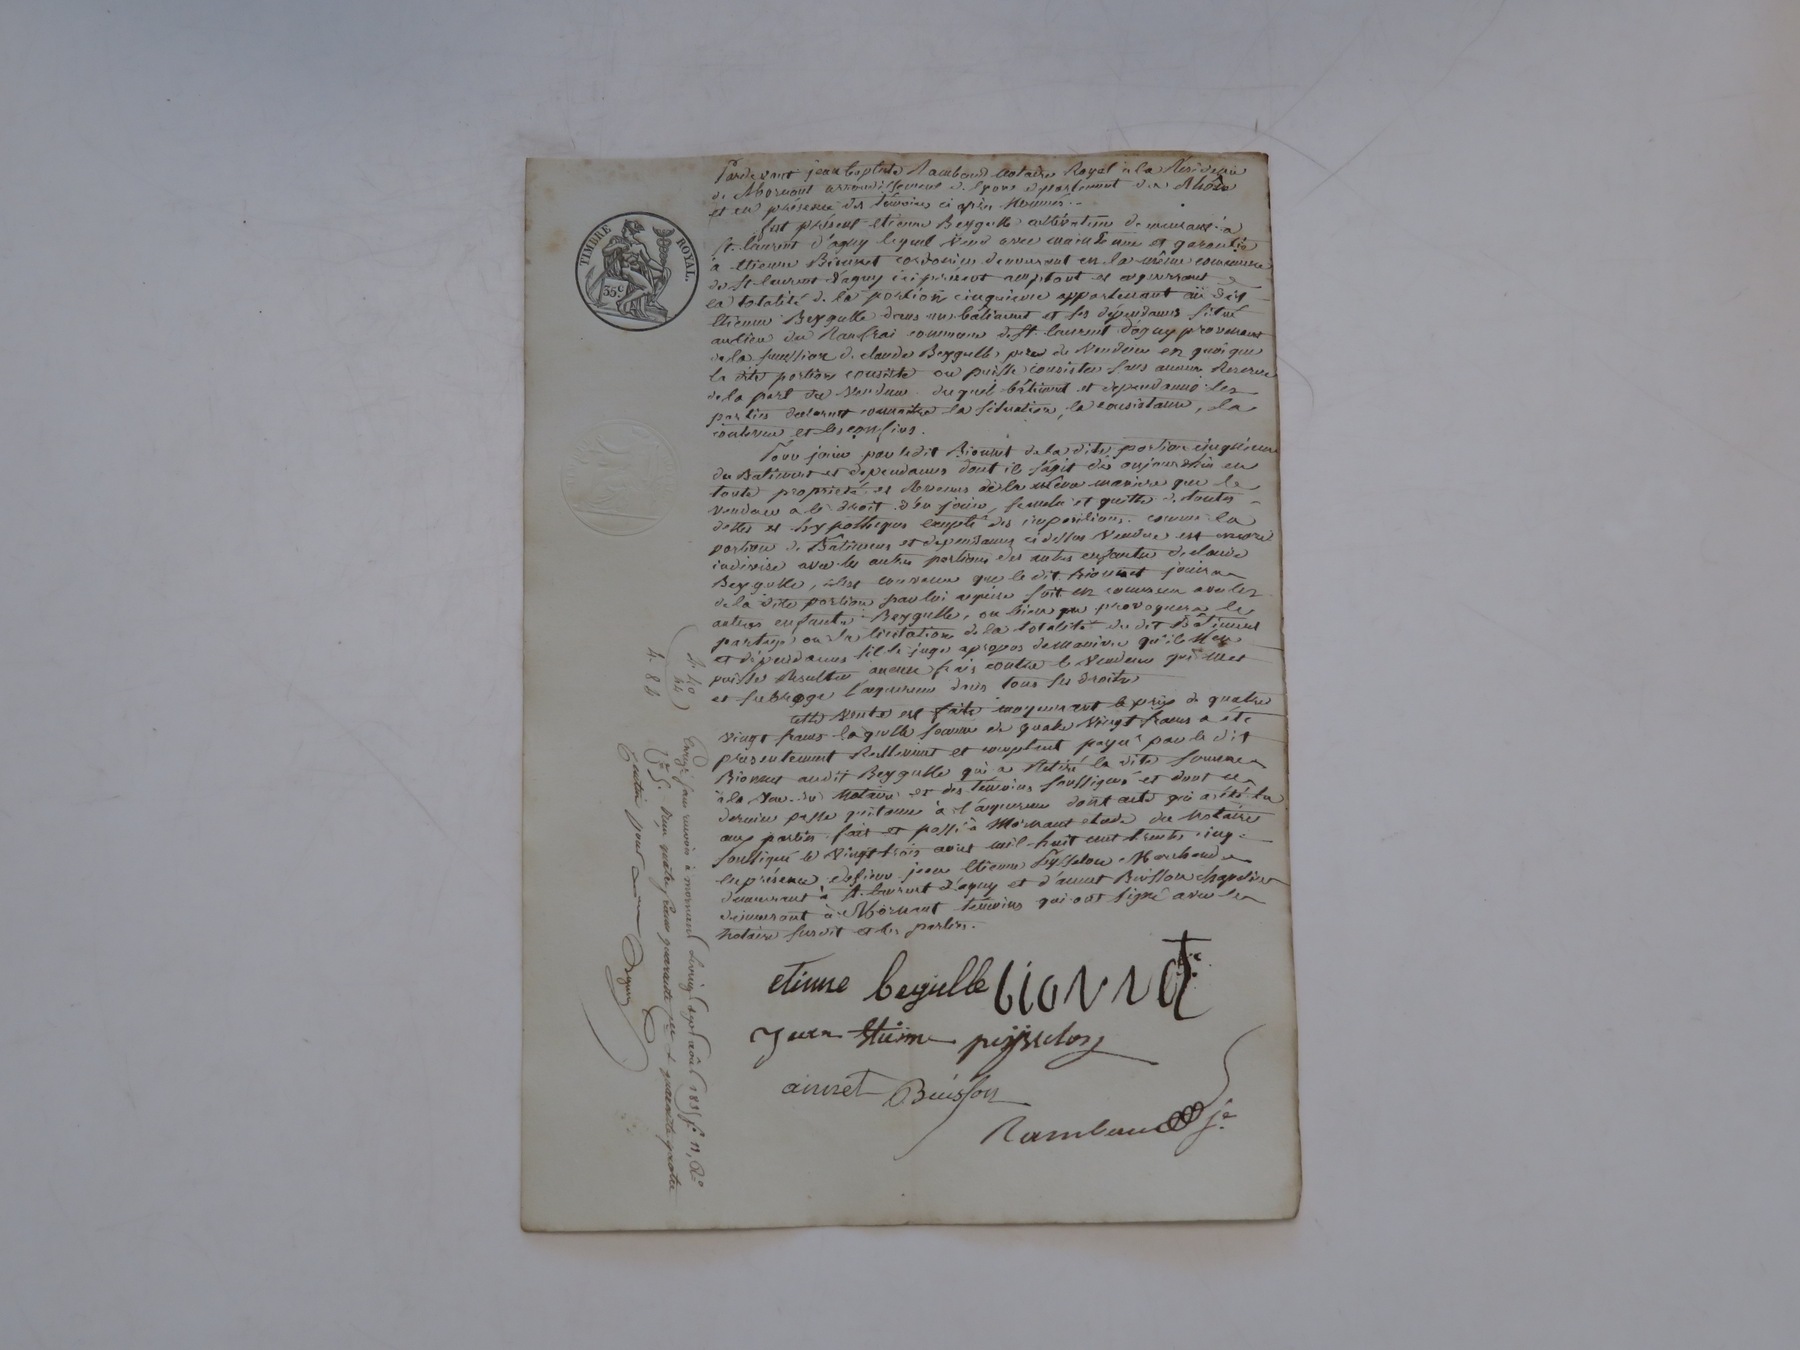 Pardevant jean baptiste Rambaud Notaire Royal à la Résidence
de Mornant arrondissement de Lyon département du Rhône
et en présence des témoins ci après Nommés.
fut présent etienne Beygulle cultivateur demeurant à
St. laurent d'agny lequel Vend avec maintenue et garantie
à etienne Bionnet cordonnier demeurant en la même commune
de St laurent d'agny ici présent acceptant et acquerrant
la totalité de la portion cinquieme appartenant au dit
Etienne Beygulle dans un bâtiment et ses dépendances situé
au lieu du commune de St. laurent d'agny provenant
de la succession de claude Beygulle père du Vendeur en quoi que
la dite portion consiste ou puisse consister sans aucune Reserve
de la part du Vendeur duquel bâtiment et dependances les
parties declarent connaitre la situation, la consistance, la
contenue et les confins.
Pour jouir par ledit Bionnet de la dite portion cinquieme
du Batiment et dependances dont il s'agit dès aujourd'hui en
toute propriété et Revenus de la même maniere que le
vendeur a le droit d'en jouir, franche et quitte de toutes
dettes et hypotheques excepté des impositions. comme la
portion de Batiment et dependances ci dessus Vendue est encore
indivise avec les autres portions des autres enfants de claude
Beygulle, il est convenu que le dit Bionnet jouira
de la dite portion par lui acquise soit en commun avec les
autres enfants Beygulle, ou bien provoquera le
partage ou la licitation de la totalité du dit Bâtiment
et dépendances s'il le juge apropos de maniere qu'il n'en
puisse Resulter aucuns frais contre le Vendeur qui met
et subroge l'acquereur dans tous ses droits
cette Vente est faite moyennant le prix de quatre
vingt francs laquelle somme de quatre Vingt francs a été
presentement Réellement et comptant payée par le dit
Bionnet audit Beygulle qui a Retiré la dite somme
à la Vue du Notaire et des témoins soussignés et dont ce
dernier passe quittance à l'acquereur dont acte qui a été lu
aux parties fait et passé à Mornant etude du Notaire
soussigné le Vingt trois avril mil huit cent trente cinq
en présence de sieur jean Etienne Peysselon Marchand
demeurant à St. laurent d'agny et d'aimet Buisson chapelier
demeurant à Mornant témoins qui ont signé avec le
Notaire susdit et les parties.
etienne begulle bionnet
Jean Etienne peysselon
aimet Buisson
Rambaud
TIMBRE ROYAL.
35 c.
4. 40
44
4. 84